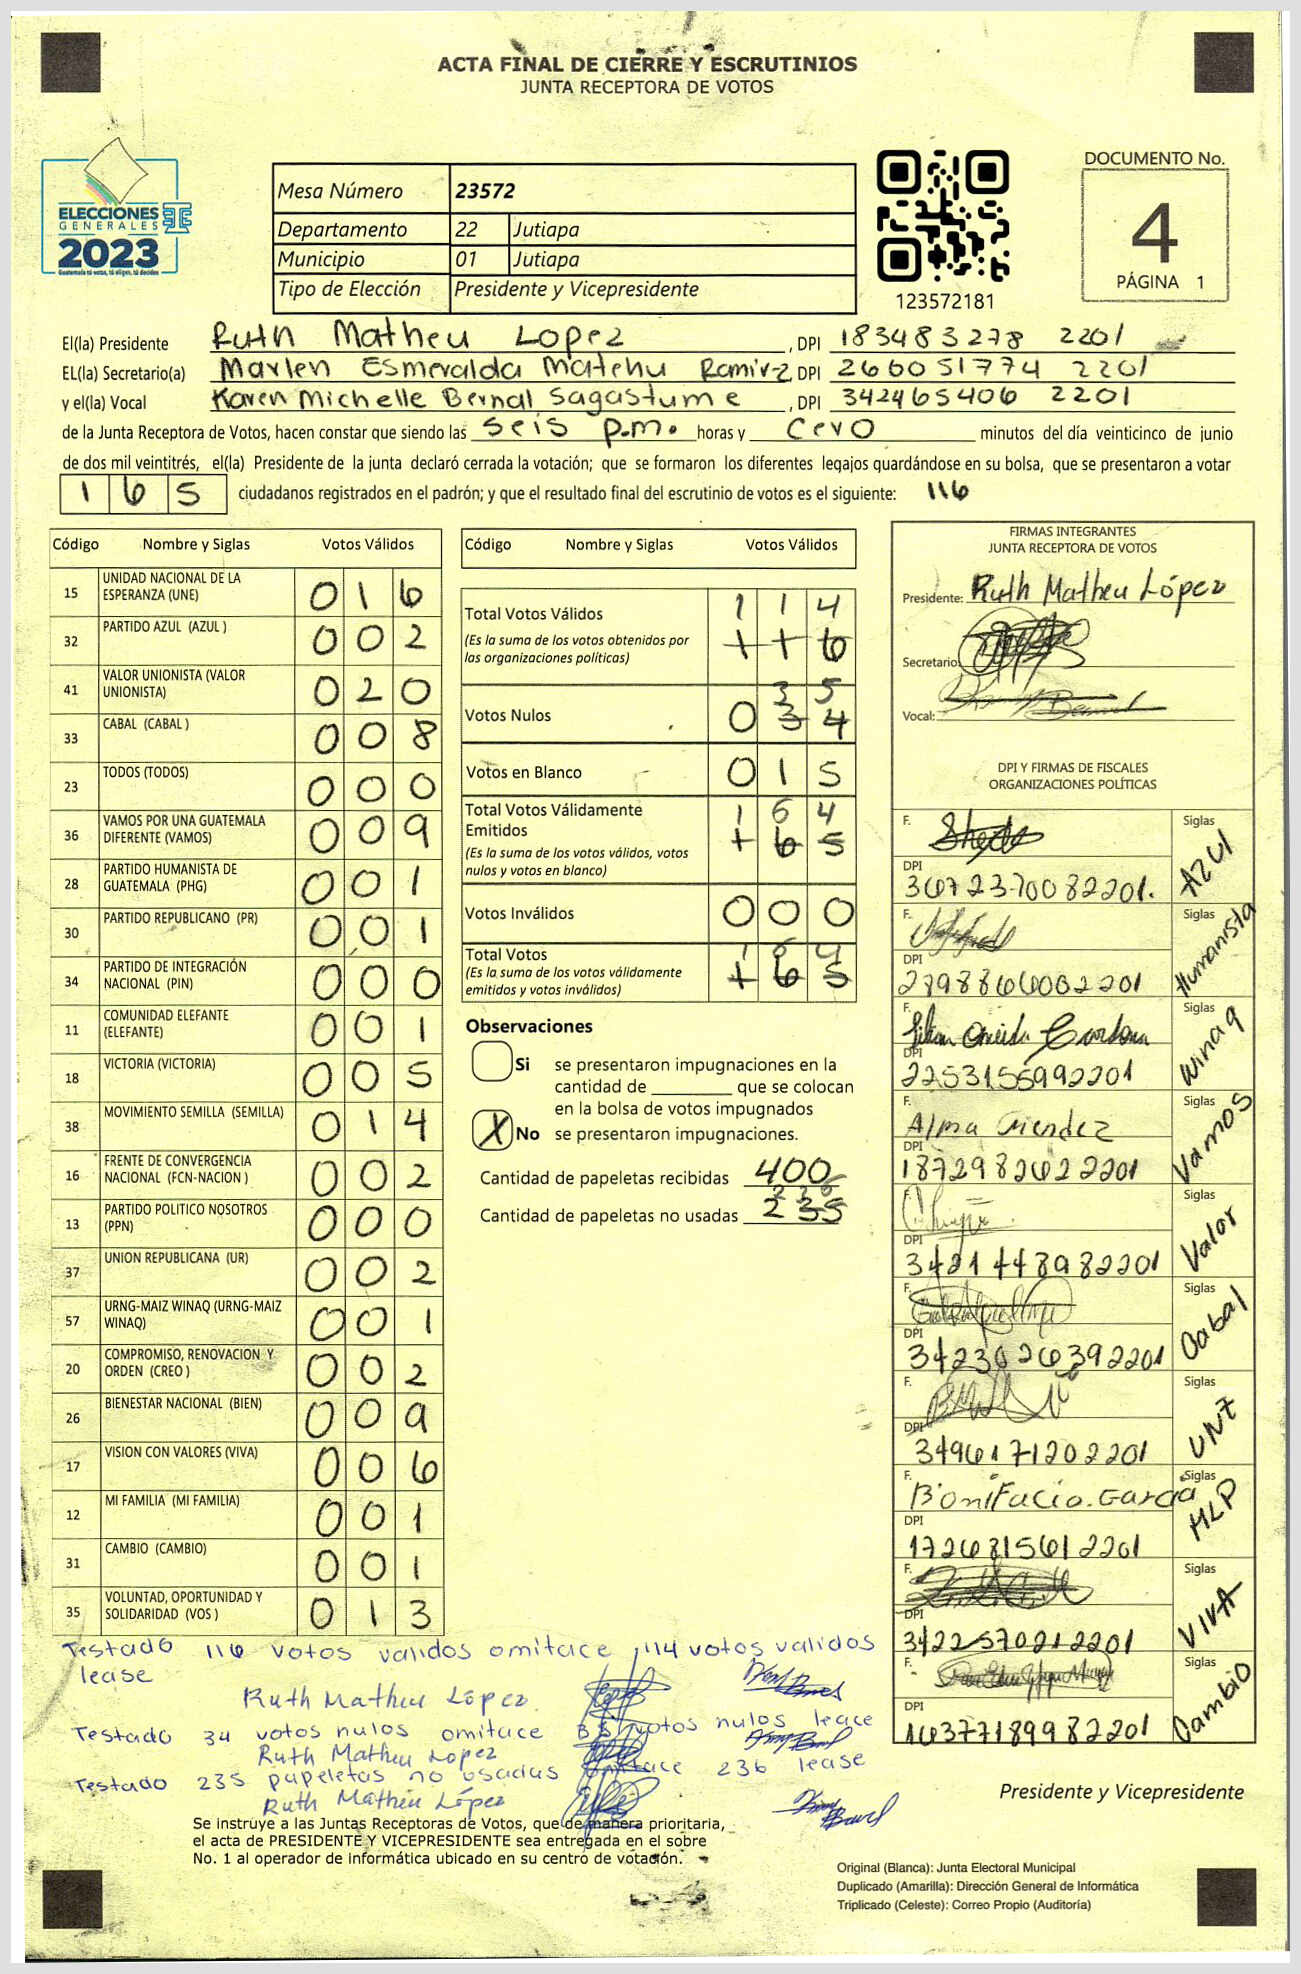 ACTA FINAL DE CIERRE Y ESCRUTINIOS
JUNTA RECEPTORA DE VOTOS
ELECCIONES
GENERALES
2023
Guatemala tú votas, tú eliges, tú decides
Mesa Número 23572
Departamento 22 Jutiapa
Municipio 01 Jutiapa
Tipo de Elección Presidente y Vicepresidente
123572181
DOCUMENTO No.
4
PÁGINA 1
El(la) Presidente Ruth Matheu Lopez, DPI 183483278 2201
EL(la) Secretario(a) Marlen Esmeralda Matehu Ramirz, DPI 266051774 2201
y el(la) Vocal Karen Michelle Bernal Sagastume, DPI 342465406 2201
de la Junta Receptora de Votos, hacen constar que siendo las seis p.m. horas y cero minutos del día veinticinco de junio
de dos mil veintitrés, el(la) Presidente de la junta declaró cerrada la votación; que se formaron los diferentes legajos quardándose en su bolsa, que se presentaron a votar
165 ciudadanos registrados en el padrón; y que el resultado final del escrutinio de votos es el siguiente: 116
Código Nombre y Siglas Votos Válidos
15 UNIDAD NACIONAL DE LA ESPERANZA (UNE) 016
32 PARTIDO AZUL (AZUL ) 002
41 VALOR UNIONISTA (VALOR UNIONISTA) 020
33 CABAL (CABAL ) 008
23 TODOS (TODOS) 000
36 VAMOS POR UNA GUATEMALA DIFERENTE (VAMOS) 009
28 PARTIDO HUMANISTA DE GUATEMALA (PHG) 001
30 PARTIDO REPUBLICANO (PR) 001
34 PARTIDO DE INTEGRACIÓN NACIONAL (PIN) 000
11 COMUNIDAD ELEFANTE (ELEFANTE) 001
18 VICTORIA (VICTORIA) 005
38 MOVIMIENTO SEMILLA (SEMILLA) 014
16 FRENTE DE CONVERGENCIA NACIONAL (FCN-NACION ) 002
13 PARTIDO POLITICO NOSOTROS (PPN) 000
37 UNION REPUBLICANA (UR) 002
57 URNG-MAIZ WINAQ (URNG-MAIZ WINAQ) 001
20 COMPROMISO, RENOVACION Y ORDEN (CREO ) 002
26 BIENESTAR NACIONAL (BIEN) 009
17 VISION CON VALORES (VIVA) 006
12 MI FAMILIA (MI FAMILIA) 001
31 CAMBIO (CAMBIO) 001
35 VOLUNTAD, OPORTUNIDAD Y SOLIDARIDAD (VOS ) 013
Código Nombre y Siglas Votos Válidos
Total Votos Válidos 114
(Es la suma de los votos obtenidos por las organizaciones políticas) 116
35
Votos Nulos 034
Votos en Blanco 015
Total Votos Válidamente Emitidos 164
(Es la suma de los votos válidos, votos nulos y votos en blanco) 165
Votos Inválidos 000
Total Votos 164
(Es la suma de los votos válidamente emitidos y votos inválidos) 165
Observaciones
Si se presentaron impugnaciones en la
cantidad de ________ que se colocan
en la bolsa de votos impugnados
X No se presentaron impugnaciones.
Cantidad de papeletas recibidas 400
236
Cantidad de papeletas no usadas 235
FIRMAS INTEGRANTES
JUNTA RECEPTORA DE VOTOS
Presidente: Ruth Matheu López
Secretario:
Vocal:
DPI Y FIRMAS DE FISCALES
ORGANIZACIONES POLÍTICAS
F. Siglas AZUL
DPI 3672370082201.
F. Siglas Humanista
DPI 2798866002201
F. Siglas Winaq
DPI 2253155992201
F. Alma Mendez Siglas Vamos
DPI 1872982622201
F. Siglas Valor
DPI 3421448982201
F. Siglas Cabal
DPI 3423026392201
F. Siglas UNE
DPI 3496171202201
F. Bonifacio. Garcia Siglas MLP
DPI 1726815612201
F. Siglas VIVA
DPI 3422570212201
F. Siglas Cambio
DPI 1637718998 2201
Testado 116 votos validos omitace, 114 votos validos
lease
Ruth Matheu López
Testado 34 votos nulos omitace 35 votos nulos leace
Ruth Matheu Lopez
Testado 235 papeletas no usadas omitace 236 lease
Ruth Matheu López
Se instruye a las Juntas Receptoras de Votos, que de manera prioritaria,
el acta de PRESIDENTE Y VICEPRESIDENTE sea entregada en el sobre
No. 1 al operador de informática ubicado en su centro de votación.
Presidente y Vicepresidente
Original (Blanca): Junta Electoral Municipal
Duplicado (Amarilla): Dirección General de Informática
Triplicado (Celeste): Correo Propio (Auditoría)